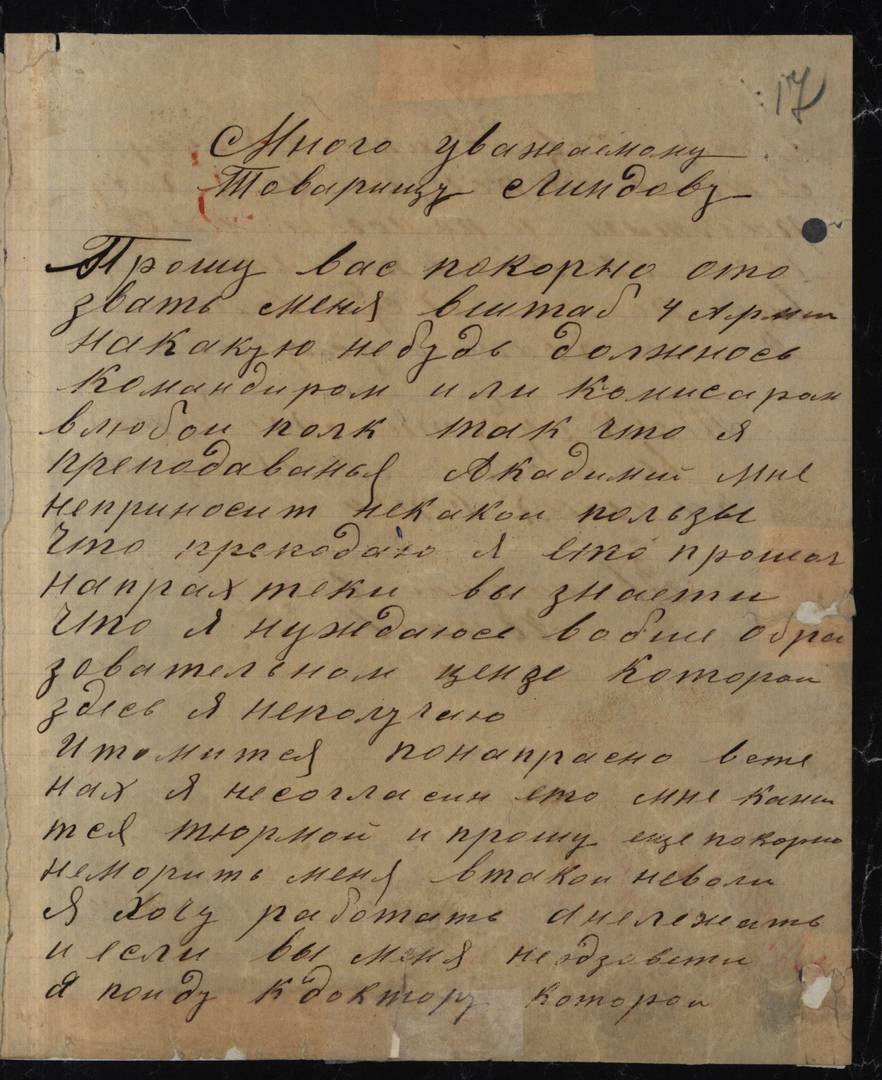 17
Много уважаемому
Товарищу Линдову
Прошу вас покорно ото
звать меня вштаб 4 Арми
накакую небудь должнось
командиром или комисаром
влюбои полк так что я
преподаванья Академий мне
неприносит некакои пользы
что преподаю я ето прошол
напрахтеки вы знаети
что я нуждаюсь вобше обра
зовательном цензе которои
здесь я неполучаю
и томится понапрасно всте
нах я несогласин ето мне кажи
тся тюрмой и прошу еще покорно
неморить меня втакои неволи
я хочу работать анележать
и если вы меня неодзовети
я поиду к доктору которои